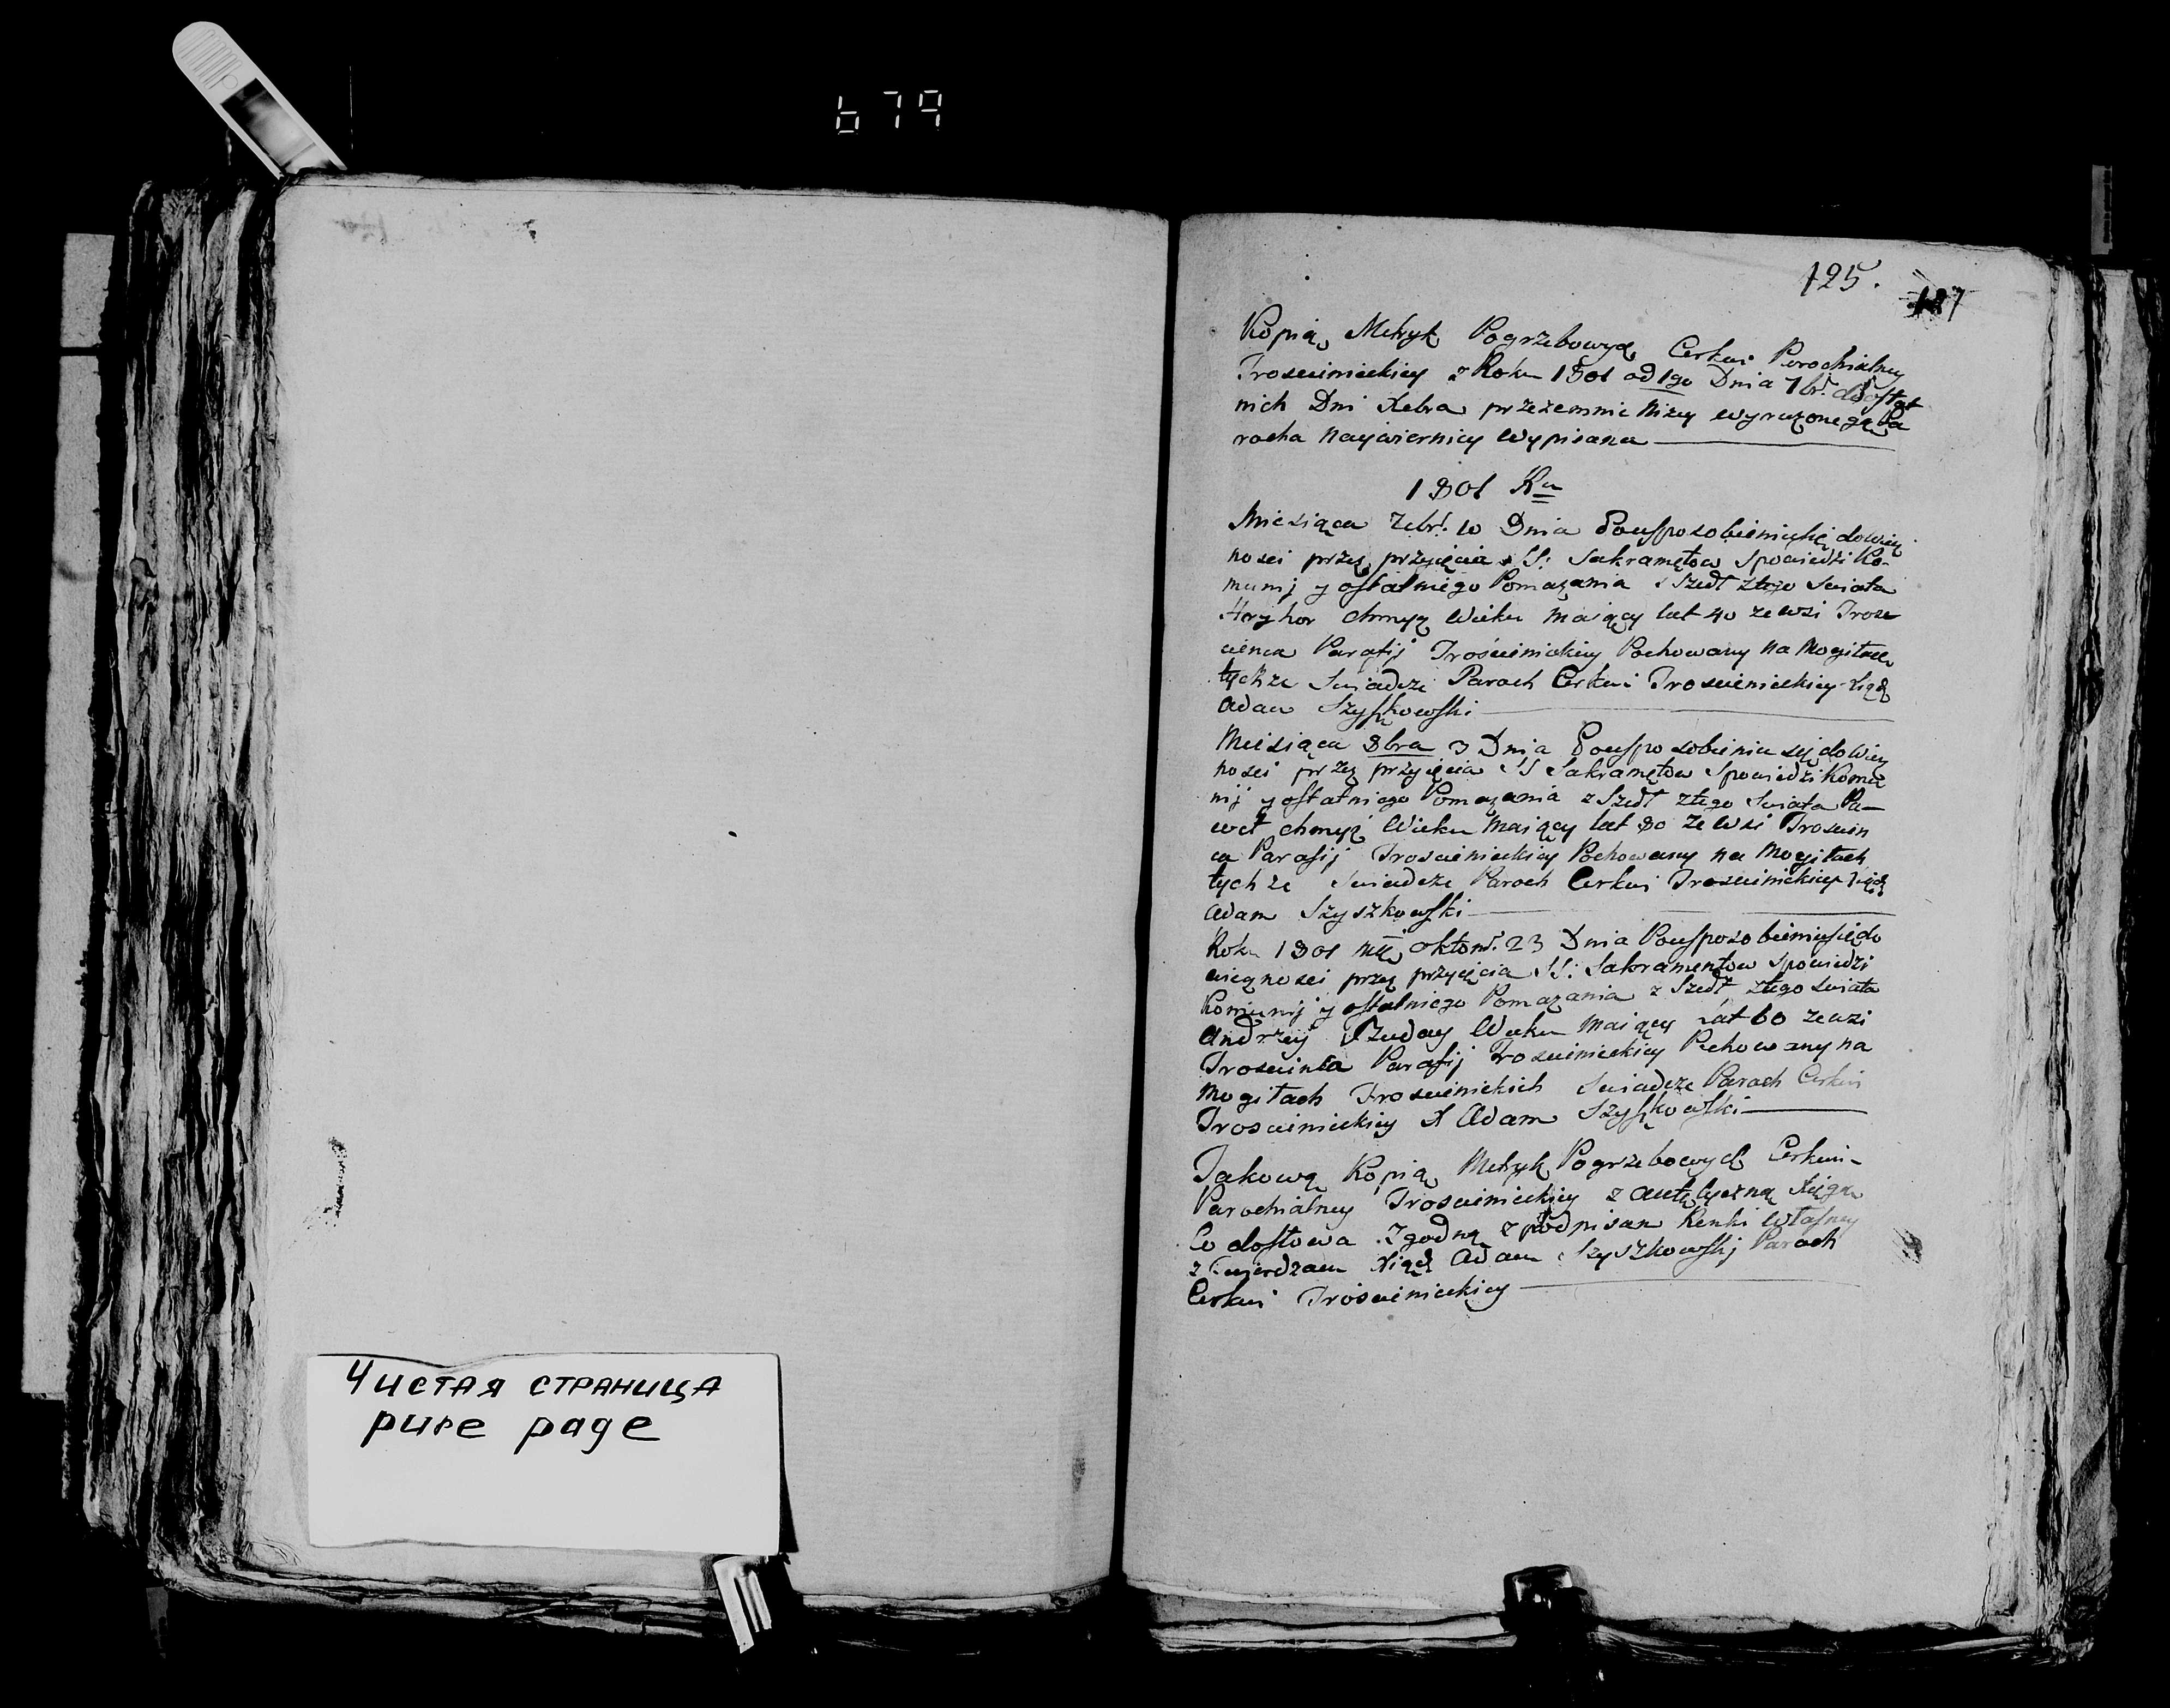 679
Чистая страница
pure page
125.
187
Kopią Metryk Pogrzebowyc Cerkwi Parochialney
Troscienieckiey z Roku 1801 od 1go Dnia 7br. do ostat
nich Dni Xebra przezemnie Niżey wyrażonego Pa
rocha Naywierniey Wypisana
1801 Ru
Miesiąca 7ebr. 10 Dnia Pousposobieniusię dowiecz
nosci przez przyięcia SS: Sakramętow Spowiedzi Ko-
munij y ostatniego Pomazania Szedł ztego Swiata
Hryhor Chmyz Wieku Maiący lat 40 ze wsi Trosc
cienca Parafij Trościenieckiey Pochowany na Mogiłach
tychze Swiadcze Paroch Cerkwi Troscienieckiey Xiądz
Adam Szyszkowski
Miesiąca 8bra 3 Dnia Pousposobieniu się do Wiecz
nosci przez przyięcia SS Sakramętow Spowiedzi Komu
nij y ostatniego Pomazania z Szedł ztego Swiata Pa-
weł Chmyz Wieku Maiący lat 80 ze Wsi Troscien
ca Parafij Troscienieckiey Pochowany na Mogiłach
tychze Swiadcze Paroch Cerkwi Troscienieckiey Xiądz
Adam Szyszkowski
Roku 1801 Mca oktobr. 23 Dnia Pousposobieniusię do
wiecznosci przez przyięcia SS: Sakramentow Spowiedzi
Komunij y ostatniego Pomazania z Szedł ztego Swiata
Andrzey Wieku Maiący Lat 60 zewsi
Troscinca Parafij Troscienieckiey Pochowany na
Mogiłach Troscienieckich Swiadcze Paroch Cerkwi
Troscienieckiey X Adam Szyszkowski
Takową Kopią Metryk Pogrzebowych Cerkwi-
Parochialney Troscienieckiey z autętyczną Xięgą
Co dosłowa Zgodną z podpisam Renki Własney
z twierdzam Xiądz Adam Szyszkowskj Paroch
Cerkwi Troscienieckiey